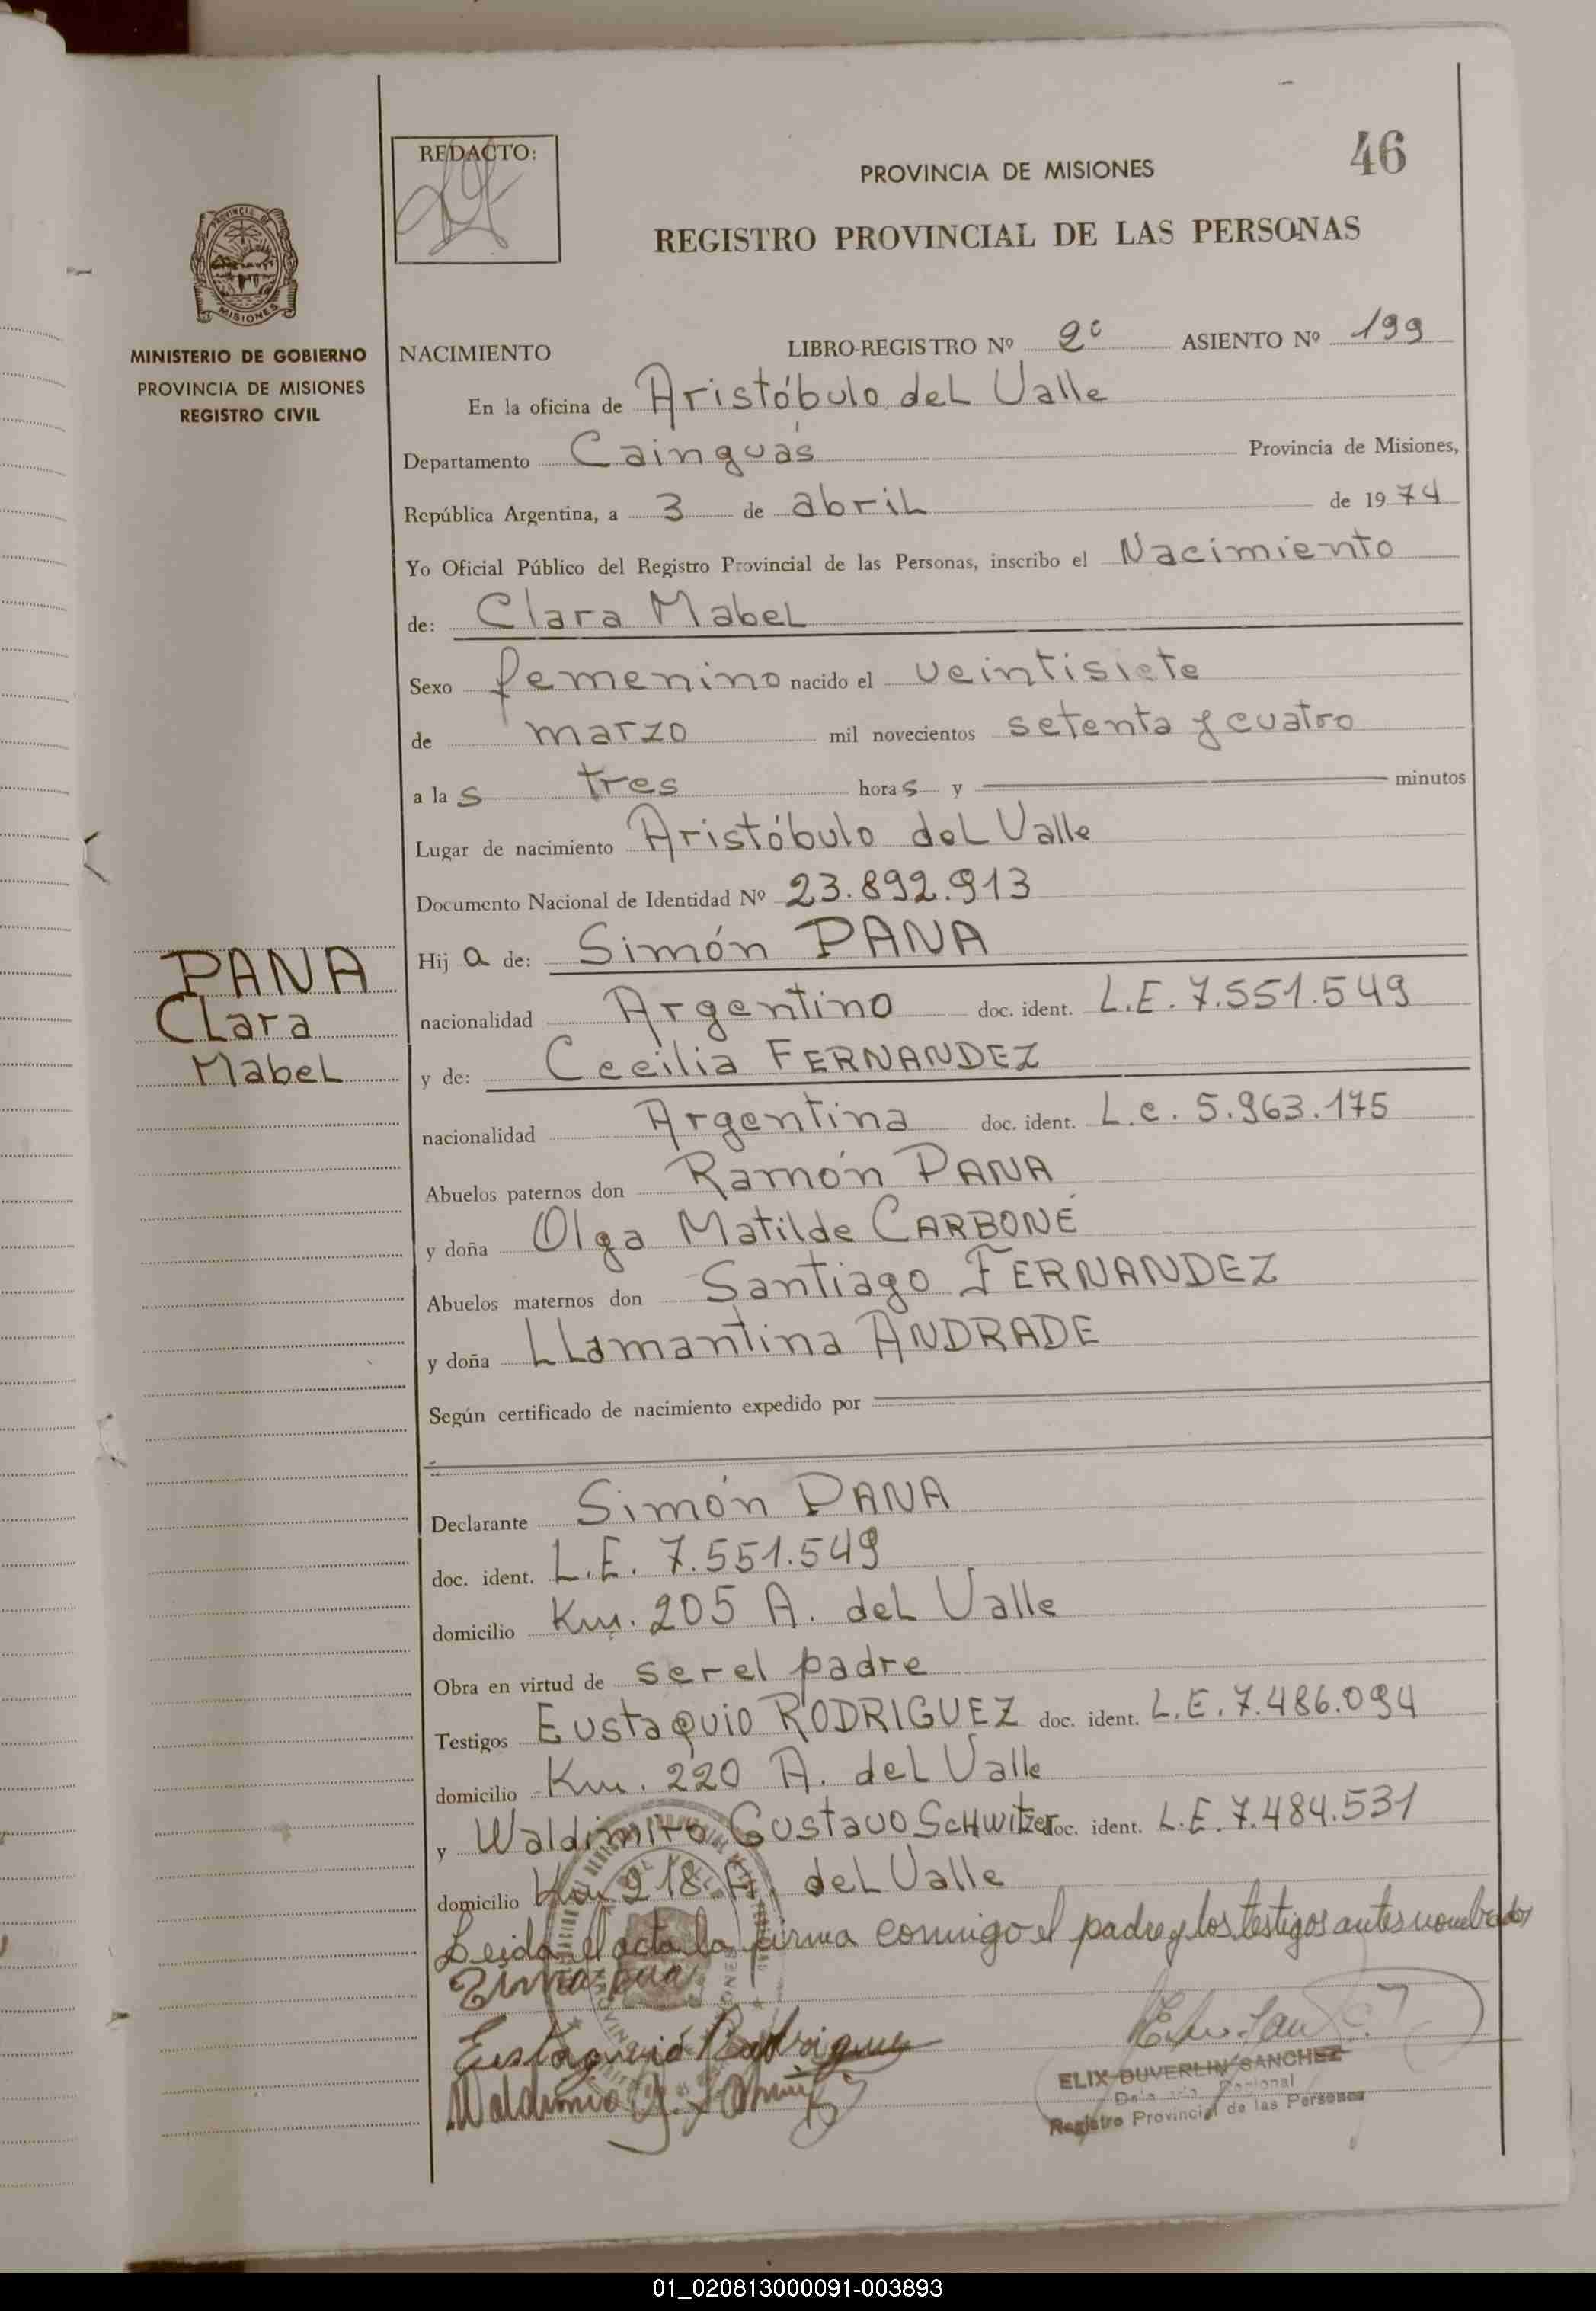 46
REDACTO:
PROVINCIA DE MISIONES
REGISTRO PROVINCIAL DE LAS PERSONAS
PROVINCIA DE
MISIONES
MINISTERIO DE GOBIERNO
PROVINCIA DE MISIONES
REGISTRO CIVIL
NACIMIENTO LIBRO-REGISTRO Nº 2º ASIENTO Nº 199
En la oficina de Aristóbulo del Valle
Departamento Cainguás Provincia de Misiones,
República Argentina, a 3 de abril de 1974
Yo Oficial Público del Registro Provincial de las Personas, inscribo el Nacimiento
de: Clara Mabel
Sexo femenino nacido el veintisiete
de marzo mil novecientos setenta y cuatro
a las tres horas y minutos
Lugar de nacimiento Aristóbulo del Valle
Documento Nacional de Identidad Nº 23.892.913
PANA
Clara
Mabel
Hija de: Simón PANA
nacionalidad Argentino doc. ident. L.E. 7.551.549
y de: Cecilia FERNANDEZ
nacionalidad Argentina doc. ident. L.c. 5.963.175
Abuelos paternos don Ramón PANA
y doña Olga Matilde CARBONE
Abuelos maternos don Santiago FERNANDEZ
y doña LLamantina ANDRADE
Según certificado de nacimiento expedido por
Declarante Simón PANA
doc. ident. L.E. 7.551.549
domicilio Km. 205 A. del Valle
Obra en virtud de ser el padre
Testigos Eustaquio RODRIGUEZ doc. ident. L.E. 7.486.094
domicilio Km. 220 A. del Valle
y Waldimiro Gustavo Schwitzer doc. ident. L.E. 7.484.531
domicilio Km 218 A. del Valle
Leida el acta la firma conmigo el padre y los testigos antes nombrados
Eustaquio Rodriguez
ELIX DUVERLIN SANCHEZ
Registro Provincial de las Personas
01_020813000091-003893